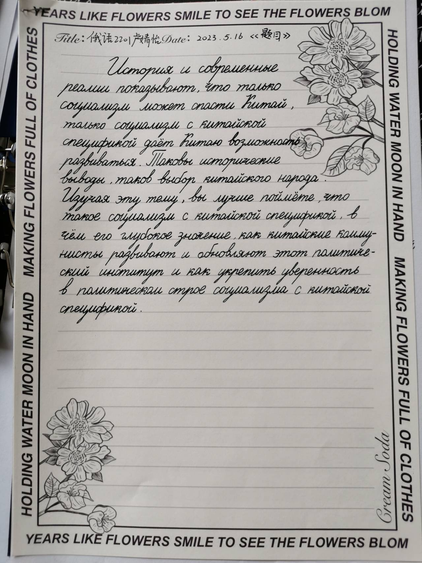 YEARS LIKE FLOWERS SMILE TO SEE THE FLOWERS BLOM
Title: 俄语2201 Date: 2023.5.16 《题目》
История и современные
реалии показывают, что только
социализм может спасти Китай,
только социализм с китайской
спецификой даёт Китаю возможность
развиваться. Таковы исторические
выводы, таков выбор китайского народа.
Изучая эту тему, вы лучше поймёте, что
такое социализм с китайской спецификой, в
чём его глубокое значение, как китайские комму-
нисты развивают и обновляют этот политиче-
ский институт и как укрепить уверенность
в политическом строе социализма с китайской
спецификой.
HOLDING WATER MOON IN HAND MAKING FLOWERS FULL OF CLOTHES
HOLDING WATER MOON IN HAND MAKING FLOWERS FULL OF CLOTHES
Cream Soda
YEARS LIKE FLOWERS SMILE TO SEE THE FLOWERS BLOM